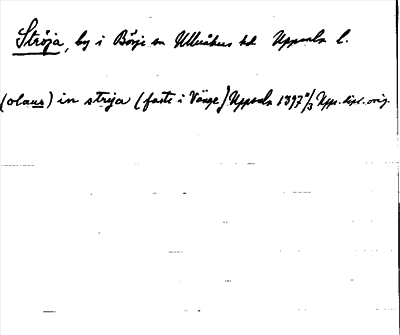 Ströja, by i Börje sn Ulleråkers hd Uppsala l.
(olaus) in strøja (faste i Vänge) Uppsala 1397 11/3 Upps. dipl. orig.